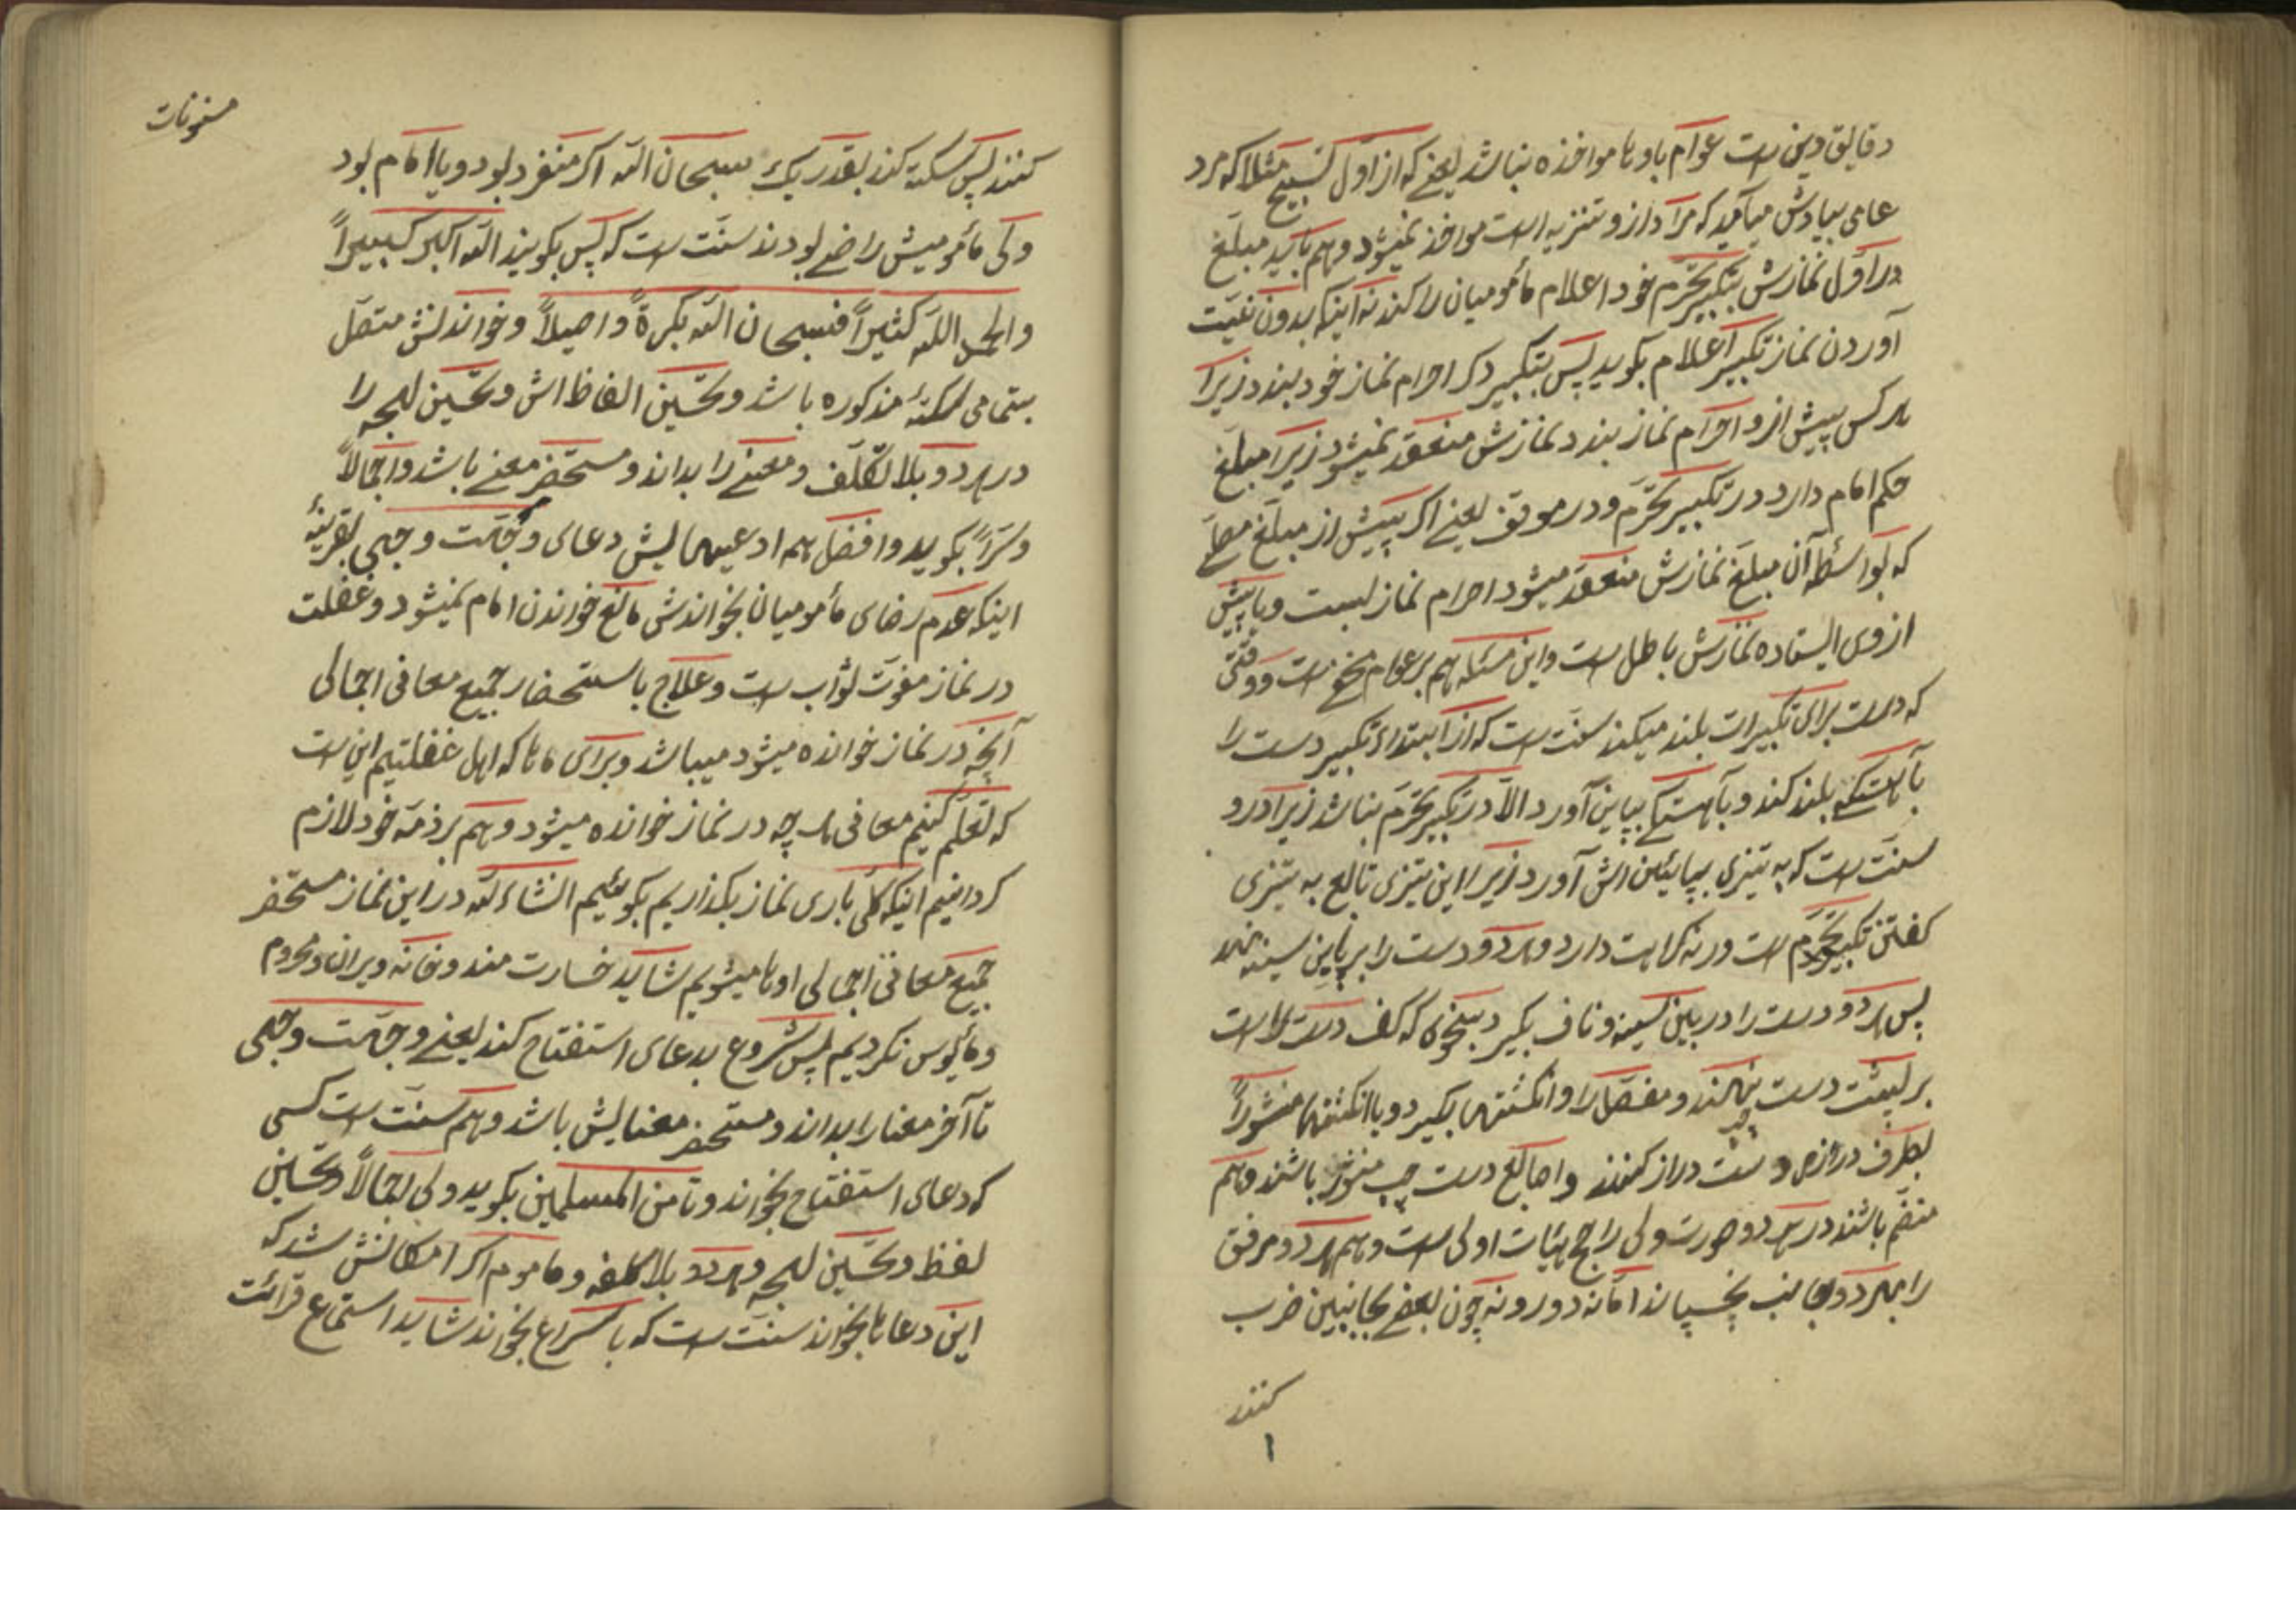 دقایق دین است عوام باوها مواخذه نباشد یعنی که از اول تسبیح مثلا که مرد
عامی بیادش میآید که مراد از و تنزیه است مواخذ نمیشود و هم باید مبلغ
در اول نمازش بتکبیر تحرم خود اعلام مأمومیان را کند نه اینکه بدون نیت
آوردن نماز تکبیر اعلام بگوید پس بتکبیر دکر احرام نماز خود بندد زیرا
هر کس پیش از و احرام نماز بندد نمازش منعقد نمیشود زیرا مبلغ
حکم امام دارد در تکبیر تحرم و در موقف یعنی اکر پیش از مبلغ مصلی
که بواسطه آن مبلغ نمازش منعقد میشود احرام نماز بست و یا پیش
از وی ایستاده نمازش باطل است و این مسئله هم بر عوام مخفی است و وقتی
که دست برای تکبیرات بلند میکند سنت است که از ابتداء تکبیر دست را
بآهستکی بلند کند و بآهستکی بپایین آورد الا در تکبیر تحرم نباشد زیرا در و
سنت است که به تیزی بپائین اش آورد زیرا این تیزی تابع به تیزی
کفتن تکبیر تحرم است ورنه کراهت دارد و هر دو دست را برپایین سینه نهد
پس هر دو دست را در بین سینه و ناف بکیرد بنحوی که کف دست راست
بر پشت دست چپ نهند و مفصل را و انکشتها بکیرد و با انکشتها منشوراً
بطرف درازی دست دراز کنند و اصابع دست چپ منثور باشند و هم
منضم باشند در هر دو صورت ولی راجح هیئات اولی است و هم هر دو مرفق
را بهر دو جانب بچسپاند اما نه دور و نه چون بعضی بجانبین ضرب
کنند
۱
مسنونات
کنند پس سکته کند بقدر یک سبحان الله اکر منفرد بود و یا امام بود
ولی مأمومیش راضی بودند سنت است که پس بکویند الله اکبر کبیراً
والحمد الله کثیراً فسبحان الله بکرةً واصیلاً و خواندنش متصل
بتمامی سکتهٔ مذکوره باشد و تحسین الفاظ اش و تحسین لهجه را
در هر دو بلا تکلف و معنی را بداند و مستحضر معنی باشد و اجمالاً
و سراً بکوید و افضل همه ادعیهایش دعای وجهت وجهی بقرینهٔ
اینکه عدم رضای مأمومیان بخواندش مانع خواندن امام نمیشود و غفلت
در نماز مفوت ثواب است و علاج باستحضار جمیع معانی اجمالی
آنچه در نماز خوانده میشود میباشد و برای ماها که اهل غفلتیم این است
که تعلم کنیم معانی هر چه در نماز خوانده میشود و هم بر ذمه خود لازم
کردانیم اینکه کلی باری نماز بکذاریم بکوئیم انشاء الله در این نماز مستحضر
جمیع معانی اجمالی اوها میشویم شاید خسارت مند و خانه ویران و محروم
و مأیوس نکردیم پس شروع بدعای استفتاح کند یعنی وجهت وجهی
تا آخر معنا را بداند و مستحضر معنایش باشد و هم سنت است کسی
که دعای استفتاح بخواند و تا من المسلمین بکوید ولی اجمالاً و تحسین
لفظ و تحسین لهجه و هر دو بلا کلفه و ماموم اکر امکانش شد که
این دعاها بخواند سنت است که باسراع بخواند شاید استماع قرائت